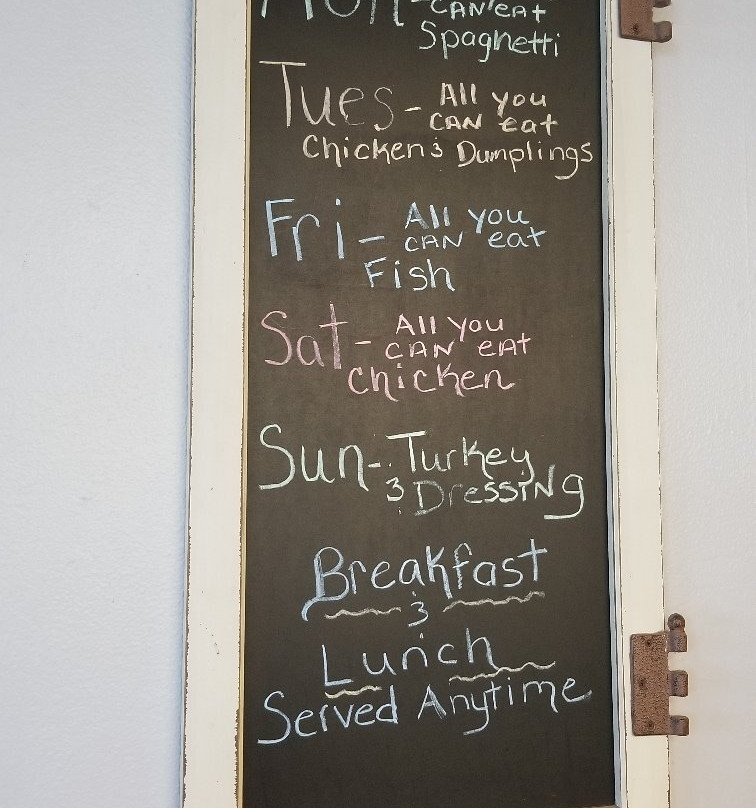 Mon - CAN eat
Spaghetti
Tues - All you
CAN eat
Chicken & Dumplings
Fri - All you
CAN eat
Fish
Sat - All you
CAN EAT
Chicken
Sun - Turkey
& DressiNg
Breakfast
&
Lunch
Served Anytime